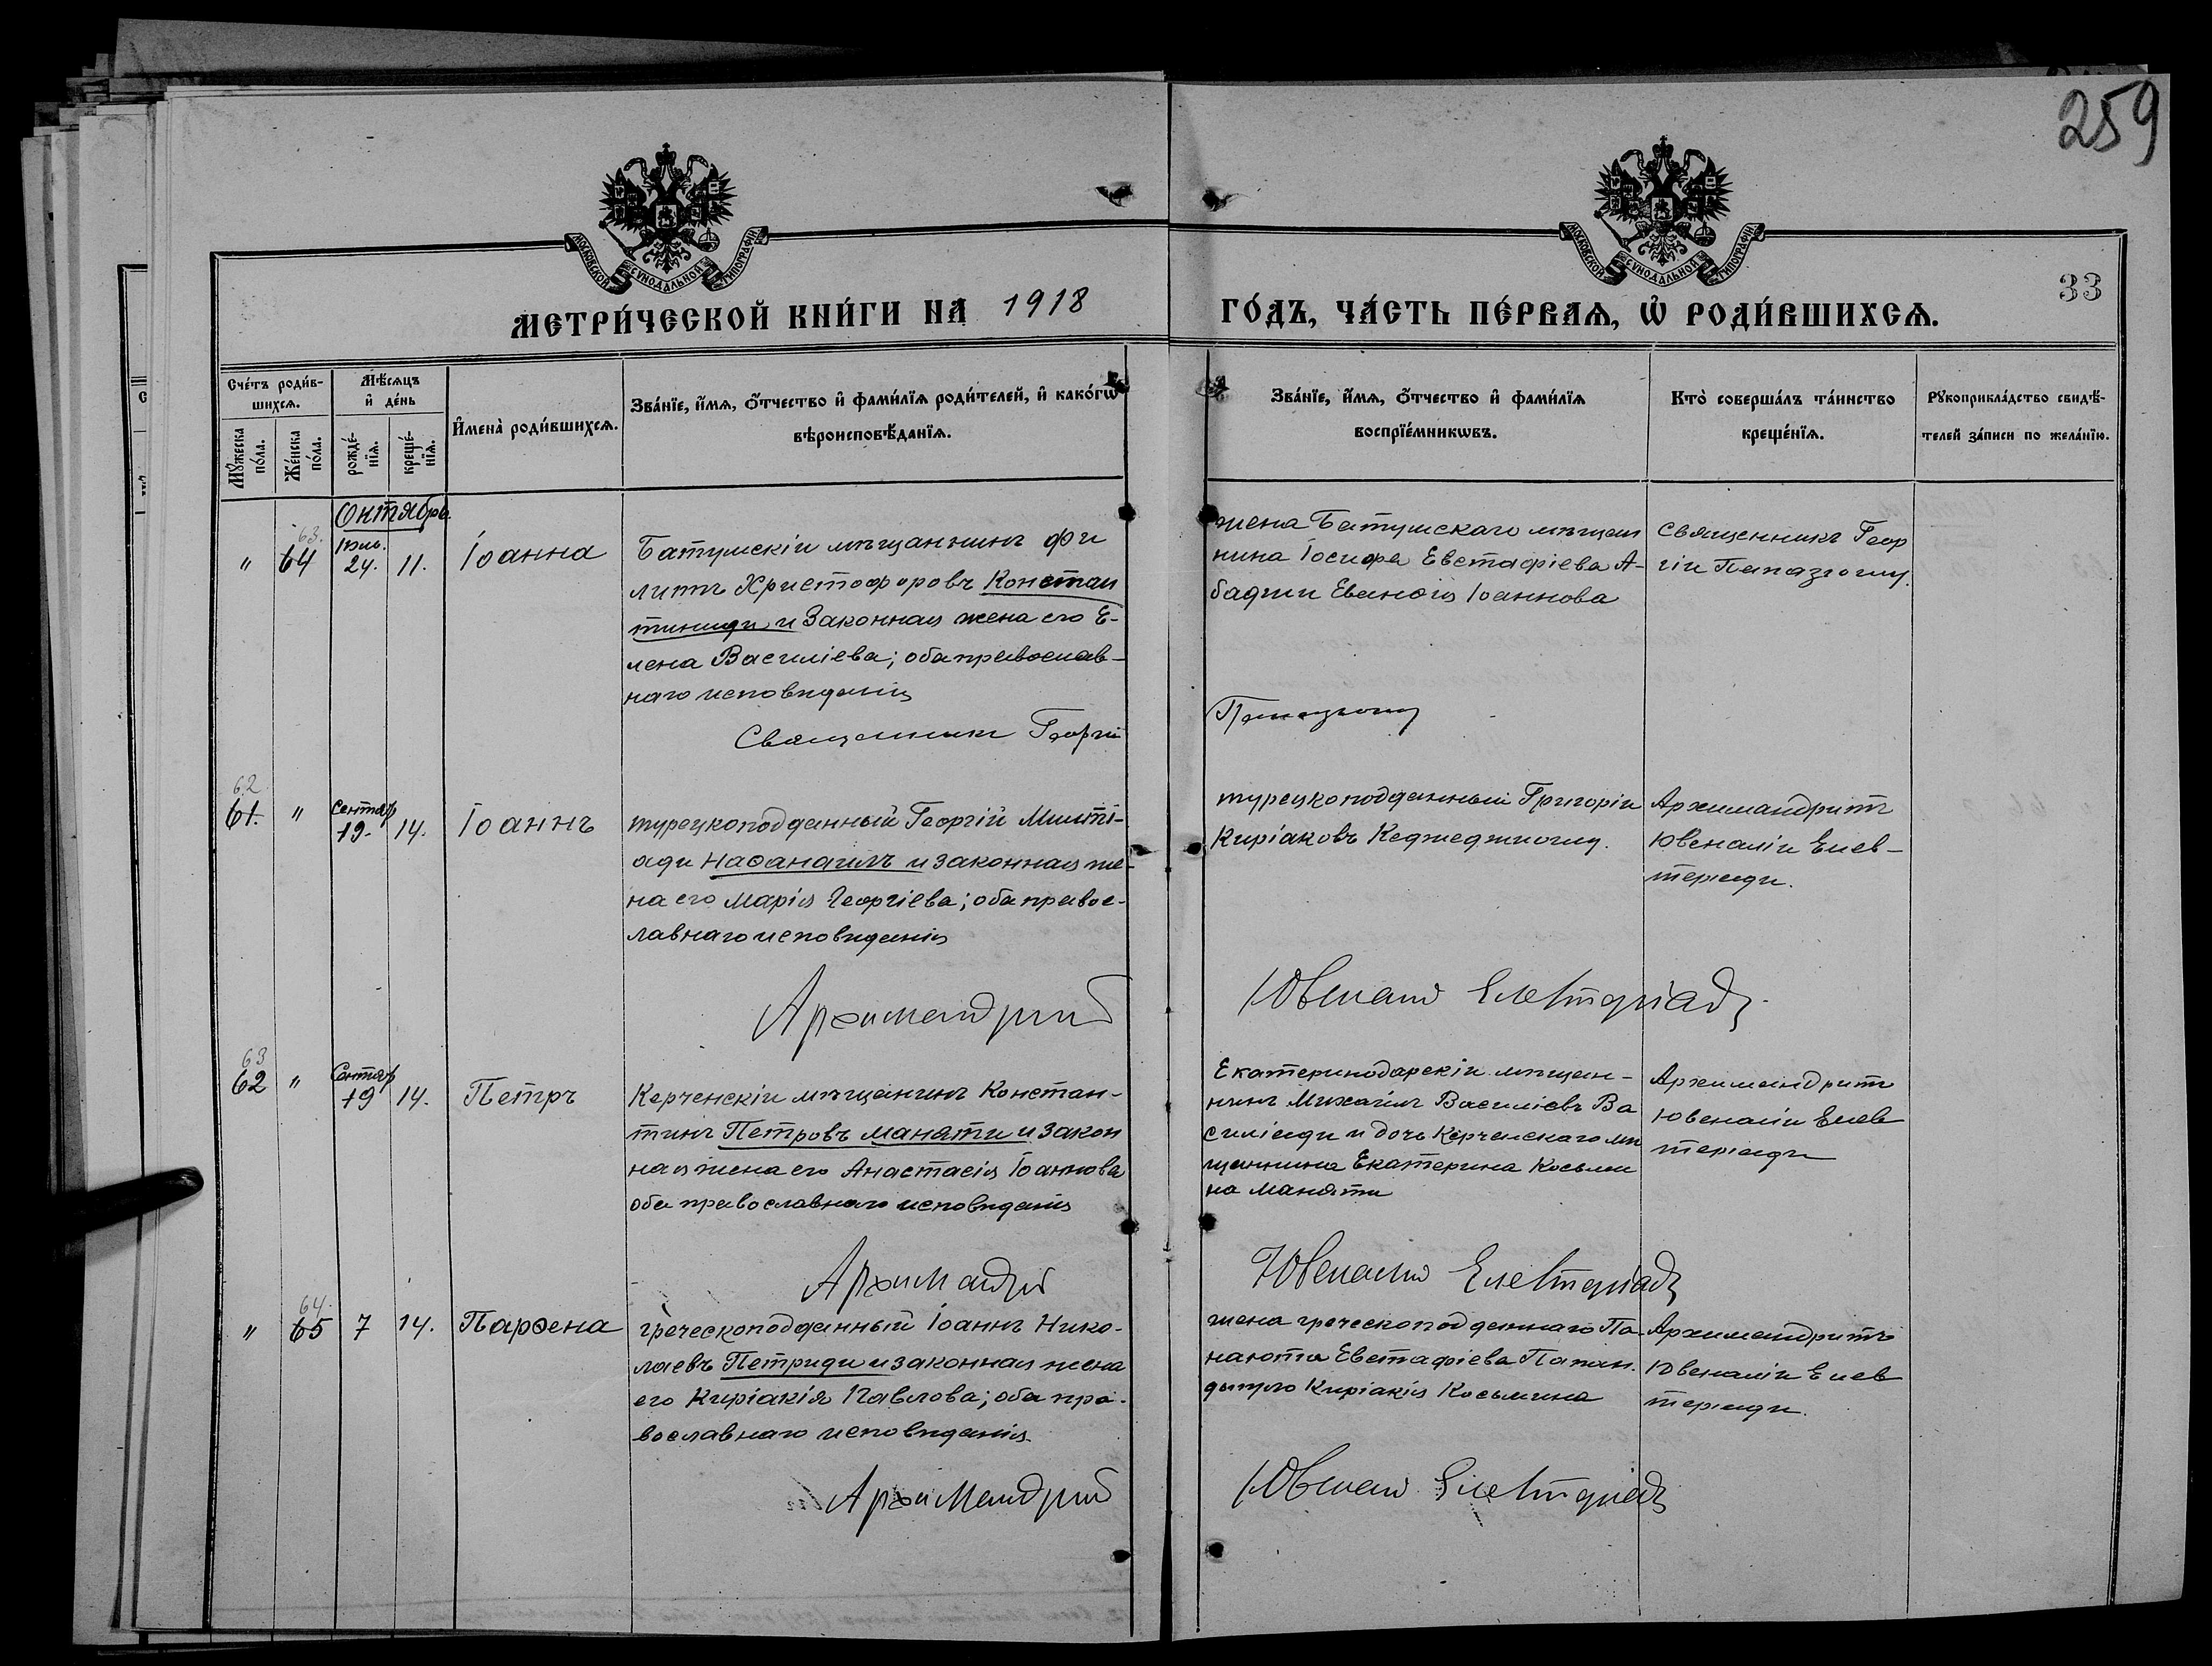 259
МОСКОВСКОЙ СѴНОДАЛЬНОЙ ТИПОГРАФІИ
МОСКОВСКОЙ СѴНОДАЛЬНОЙ ТИПОГРАФІИ
33
МЕТРИ́ЧЕСКОЙ КНИ́ГИ НА 1918
ГО́ДЪ, ЧА́СТЬ ПЕ́РВАѦ, Ѡ҆ РОДИ́ВШИХСѦ.
Сче́тъ роди́в-
шихсѧ.
Мꙋ́жеска по́ла.
Же́нска по́ла.
Мѣ́сѧцъ
и҆ де́нь
рожде́-
нїѧ.
креще́-
нїѧ.
И҆мена̀ роди́вшихсѧ.
Зва́нїе, и҆́мѧ, ѻ҆́тчество и҆ фами́лїѧ роди́телей, и҆ како́гѡ
вѣроисповѣ́данїѧ.
Зва́нїе, и҆́мѧ, ѻ҆́тчество и҆ фами́лїѧ
воспрїе́мникѡвъ.
Кто̀ соверша́лъ та́инство
креще́нїѧ.
Рꙋкоприкла́дство свидѣ́-
телей за́писи по жела́нїю.
Октябрь.
63.
" 64 Іюль. 24. 11. Іоанна
Батумскій мѣщанинъ Фи
липпъ Христофоровъ Констан
тиниди и законная жена его Е-
лена Василіева; оба православ-
наго исповѣданія
Священникъ Георгій
жена Батумскаго мѣщан
нина Іосифа Евстафіева А-
баджи Еванѳія Іоаннова
Священникъ Геор
гій Папазоглу.
Папазоглу
62
61. " Сентяб 19. 14. Іоаннъ
турецкоподданный Георгій Милті-
ади Наѳанаилъ и законная же-
на его Марія Георгіева; оба правос-
лавнаго исповѣданія
Архимандритъ
турецкоподданный Григорій
Киріаковъ Кеджеджиоглу.
Архимандритъ
Ювеналій Елев-
теріади.
Ювеналій Елевтеріади
63
62 " Сентяб 19 14. Петръ
Керченскій мѣщанинъ Констан-
тинъ Петровъ Маняти и закон
ная жена его Анастасія Іоаннова
оба православнаго исповѣданія
Архимандритъ
Екатеринодарскій мѣщан-
нинъ Михаилъ Василіевъ Ва
силіади и дочь Керченскаго мѣ
щаннина Екатерина Косьми
на Маняти
Архимандритъ
Ювеналій Елев
теріади
Ювеналій Елевтеріади
64.
" 65 7 14. Парѳена
греческоподданный Іоаннъ Нико-
лаевъ Петриди и законная жена
его Киріакія Павлова; оба пра-
вославнаго исповѣданія.
Архимандритъ
жена греческоподданнаго Па-
наіота Евстафіева
Киріакія Косьмина
Архимандритъ
Ювеналій Елев
теріади.
Ювеналій Елевтеріади